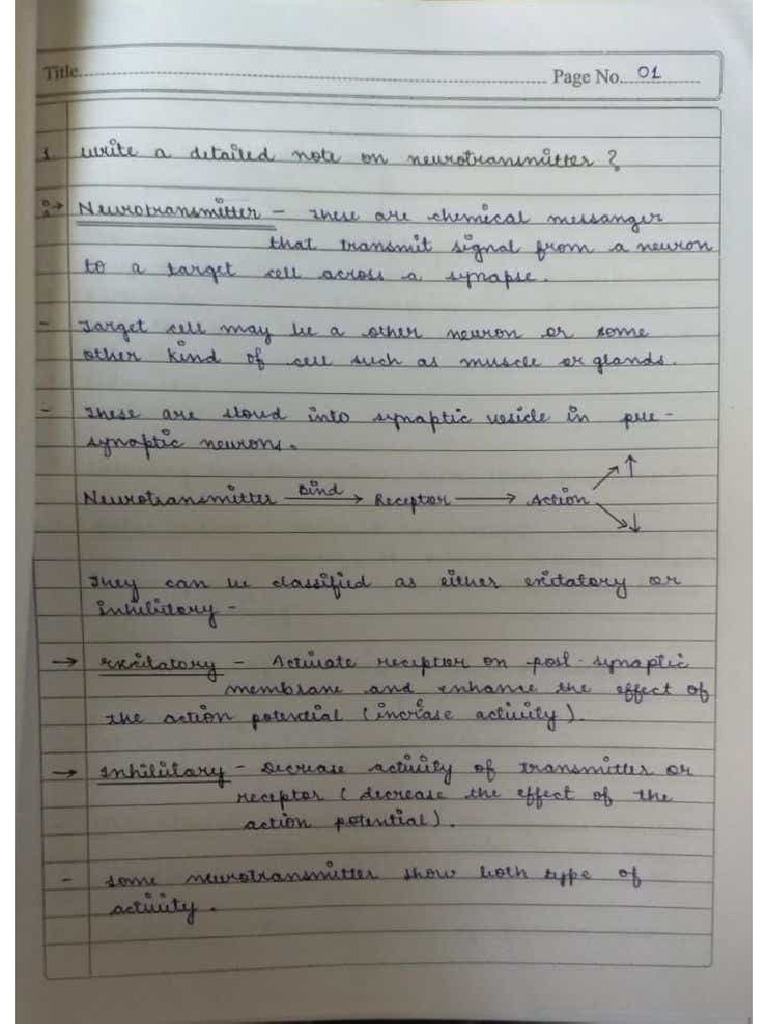 Title.......... Page No... 01
1. Write a detailed note on neurotransmitter ?
Neurotransmitter - These are chemical messanger
that transmit signal from a neuron
to a target cell across a synapse.
- Target cell may be a other neuron or some
other kind of cell such as muscle or glands.
- These are stoud into synaptic vesicle in pre-
synaptic neurons.
Neurotransmitter Bind → Receptor → Action ↑ ↓
They can be classified as either exitatory or
inhibitory -
→ Excitatory - Activate receptor on post-synaptic
membrane and enhance the effect of
the action potential (increase activity).
→ Inhibitary - Decrease activity of transmitter or
receptor (decrease the effect of the
action potential).
- some neurotransmitter show both type of
activity.